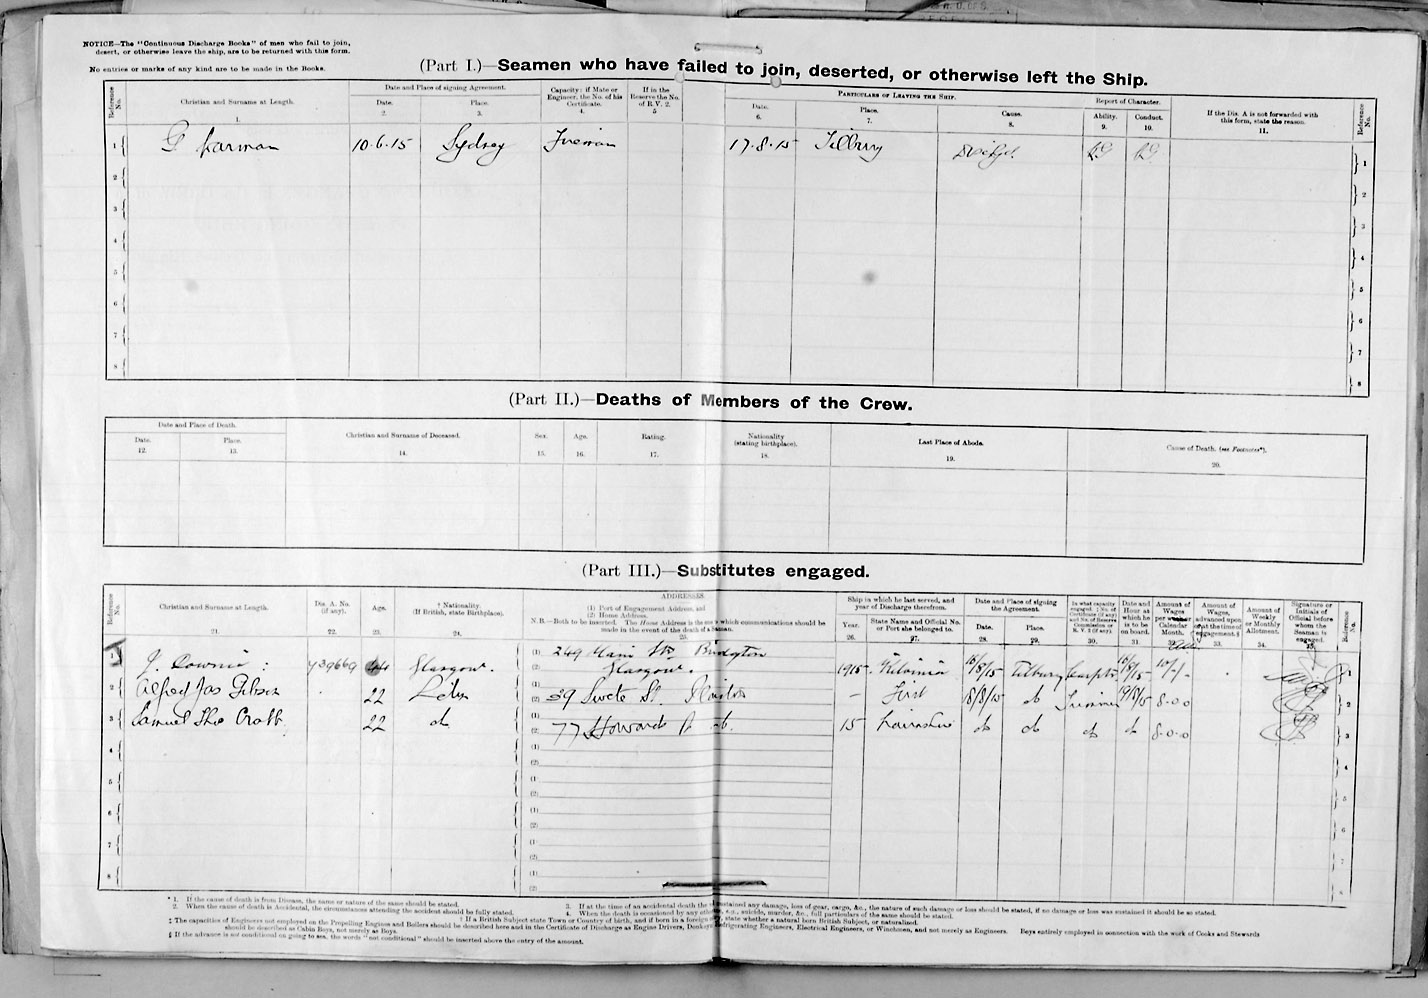 NOTICE—The "Continuous Discharge Books" of men who fail to join,
desert, or otherwise leave the ship, are to be returned with this form.
No entries or marks of any kind are to be made in the Books.
(Part I.)—Seamen who have failed to join, deserted, or otherwise left the Ship.
Reference No.
Christian and Surname at Length.
1.
Date and Place of signing Agreement.
Date.
2.
Place.
3.
Capacity: if Mate or Engineer, the No. of his Certificate.
4.
If in the Reserve the No. of R.V. 2.
5
Particulars of Leaving the Ship.
Date.
6.
Place.
7.
Cause.
8.
Report of Character.
Ability.
9.
Conduct.
10.
If the Dis. A is not forwarded with this form, state the reason.
11.
Reference No.
1 10·6·15 Sydney Fireman 17·8·15 Tilbury Dischgd. VG VG 1
2 2
3 3
4 4
5 5
6 6
7 7
8 8
(Part II.)—Deaths of Members of the Crew.
Date and Place of Death.
Date.
12.
Place.
13.
Christian and Surname of Deceased.
14.
Sex.
15.
Age.
16.
Rating.
17.
Nationality
(stating birthplace).
18.
Last Place of Abode.
19.
Cause of Death. (see Footnotes*).
20.
(Part III.)—Substitutes engaged.
Reference No.
Christian and Surname at Length.
21.
Dis. A. No.
(if any).
22.
Age.
23.
† Nationality.
(If British, state Birthplace).
24.
ADDRESSES.
(1) Port of Engagement Address, and
(2) Home Address.
N.B.—Both to be inserted. The Home Address is the one to which communications should be
made in the event of the death of a Seaman.
25.
Ship in which he last served, and
year of Discharge therefrom.
Year.
26.
State Name and Official No.
or Port she belonged to.
27.
Date and Place of signing
the Agreement.
Date.
28.
Place.
29.
In what capacity
engaged. ‡ No. of
Certificate (if any)
and No. of Reserve
Commission or
R.V. 2 (if any).
30.
Date and
Hour at
which he
is to be
on board.
31.
Amount of
Wages
per
Calendar
Month.
32.
Amount of
Wages,
advanced upon
or at the time of
engagement.§
33.
Amount of
Weekly
or Monthly
Allotment.
34.
Signature or
Initials of
Official before
whom the
Seaman is
engaged.
35.
Reference No.
1 J. Downie 739669 44 Glasgow. 249 Main St Bridgeton
Glasgow. 1915 16/8/15 Tilbury Carptr 16/8/15 1
2 Alfred Jas Gibson 22 39 St. First 18/8/15 do Trimmer 19/8/15 8·0·0 2
3 Samuel Thos 22 do 77 Howards do. 15 do do do do 8·0·0 3
4 4
5 5
6 6
7 7
8 8
* 1. If the cause of death is from Disease, the name or nature of the same should be stated.
2. When the cause of death is Accidental, the circumstances attending the accident should be fully stated.
3. If at the time of an accidental death the sustained any damage, loss of gear, cargo, &c., the nature of such damage or loss should be stated, if no damage or loss was sustained it should be so stated.
4. When the death is occasioned by any other e.g., suicide, murder, &c., full particulars of the same should be stated.
† If a British Subject state Town or Country of birth, and if born in a foreign state whether a natural born British Subject, or naturalized.
‡ The capacities of Engineers not employed on the Propelling Engines and Boilers should be described here and in the Certificate of Discharge as Engine Drivers, Donkey Refrigerating Engineers, Electrical Engineers, or Winchmen, and not merely as Engineers. Boys entirely employed in connection with the work of Cooks and Stewards
should be described as Cabin Boys, not merely as Boys.
§ If the advance is not conditional on going to sea, the words "not conditional" should be inserted above the entry of the amount.